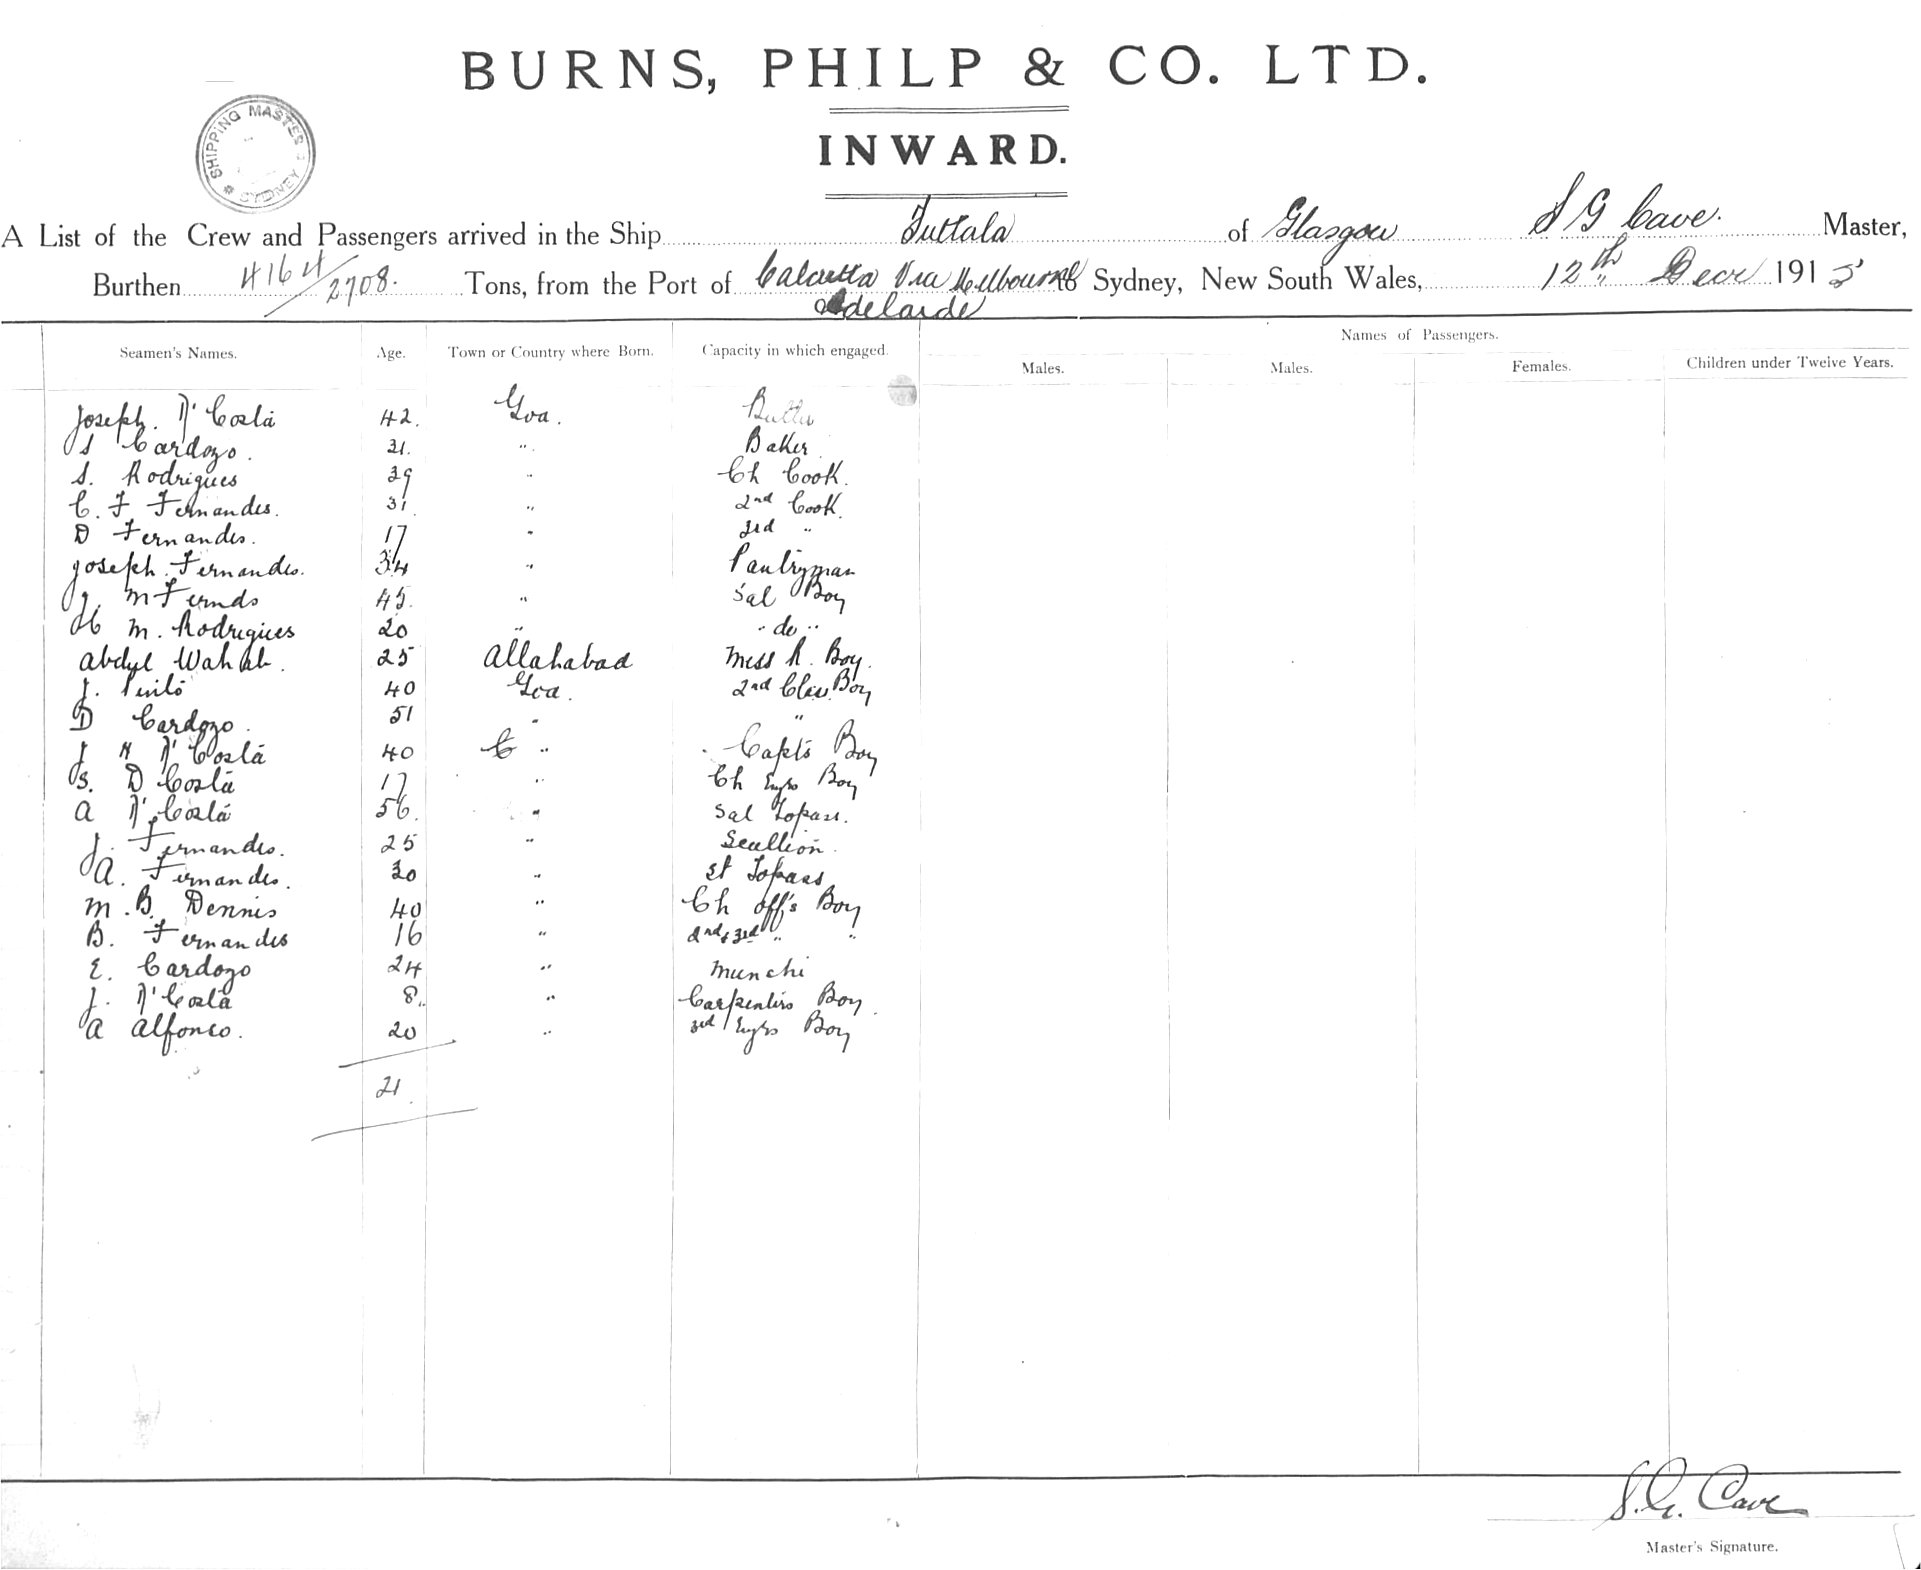 BURNS, PHILP & CO. LTD.
INWARD.
SHIPPING MASTER SYDNEY
A List of the Crew and Passengers arrived in the Ship Tuttala of Glasgow S G Cave. Master,
Burthen 4164/2708. Tons, from the Port of Calcutta Via Melbourne & Sydney, New South Wales, 12th Decr 1913
Adelaide
Names of Passengers.
Seamen's Names. Age. Town or Country where Born. Capacity in which engaged. Males. Males. Females. Children under Twelve Years.
Joseph. D'Costa 42. Goa. Butler
S Cardozo. 31. " Baker
S. Rodrigues 39 " Ch Cook.
C. F Fernandes. 31 " 2nd Cook.
D Fernandes. 17 " 3rd "
Joseph Fernandes. 34 " Pantryman
J. M Fernds 45. " Sal Boy
M. Rodrigues 20 " " do "
Abdul Wahab. 25 Allahabad Mess R. Boy.
J. Pinto 40 Goa. 2nd Class Boy
D Cardozo. 51 " "
J H D'Costa 40 " Capts Boy
S. D Costa 17 " Ch Engrs Boy
A D'Costa 56. " Sal Topass.
J. Fernandes. 25 " Scullion.
A. Fernandes. 30 " St Topass
M. B. Dennis 40 " Ch Off's Boy
B. Fernandes 16 " 2nd & 3rd " "
E. Cardozo 24 " Munchi
J. D'Costa 8. " Carpenters Boy.
A Alfonco. 20 " 3rd Engrs Boy
21.
S. G. Cave
Master's Signature.